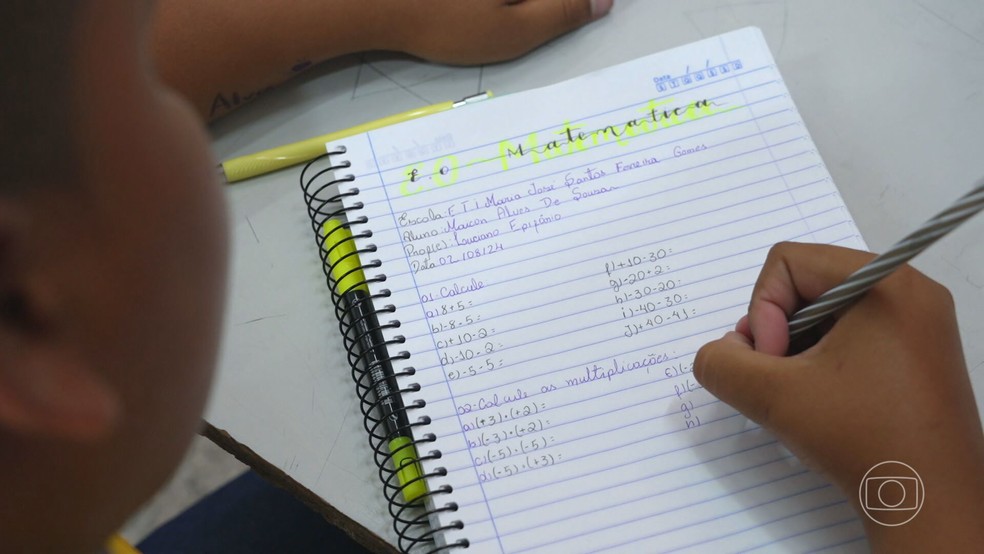 Data
E.O - Matematica
Escola: E T I Maria José Santos Ferreira Gomes
Aluno: Maicon Alves De Souza
Prof(e): Luciano Epifânio
Data: 02/08/24
01-Calcule
a) 8+5=
b) -8-5=
c) +10-2=
d) -10-2=
e) -5-5=
f) +10-30=
g) -20+2=
h) -30-20=
i) -40-30=
j) +40-41=
02-Calcule as multiplicações:
a) (+3)•(+2)=
b) (-3)•(+2)=
c) (-5)•(-5)=
d) (-5)•(+3)=
e) (-2
f) (-
g)
h)